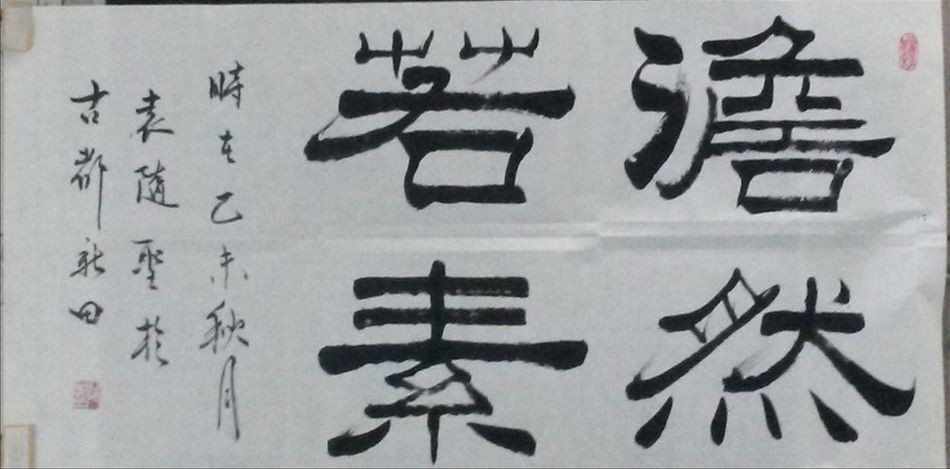 澹然
若素
時在乙未秋月
袁随聖於
古都新田